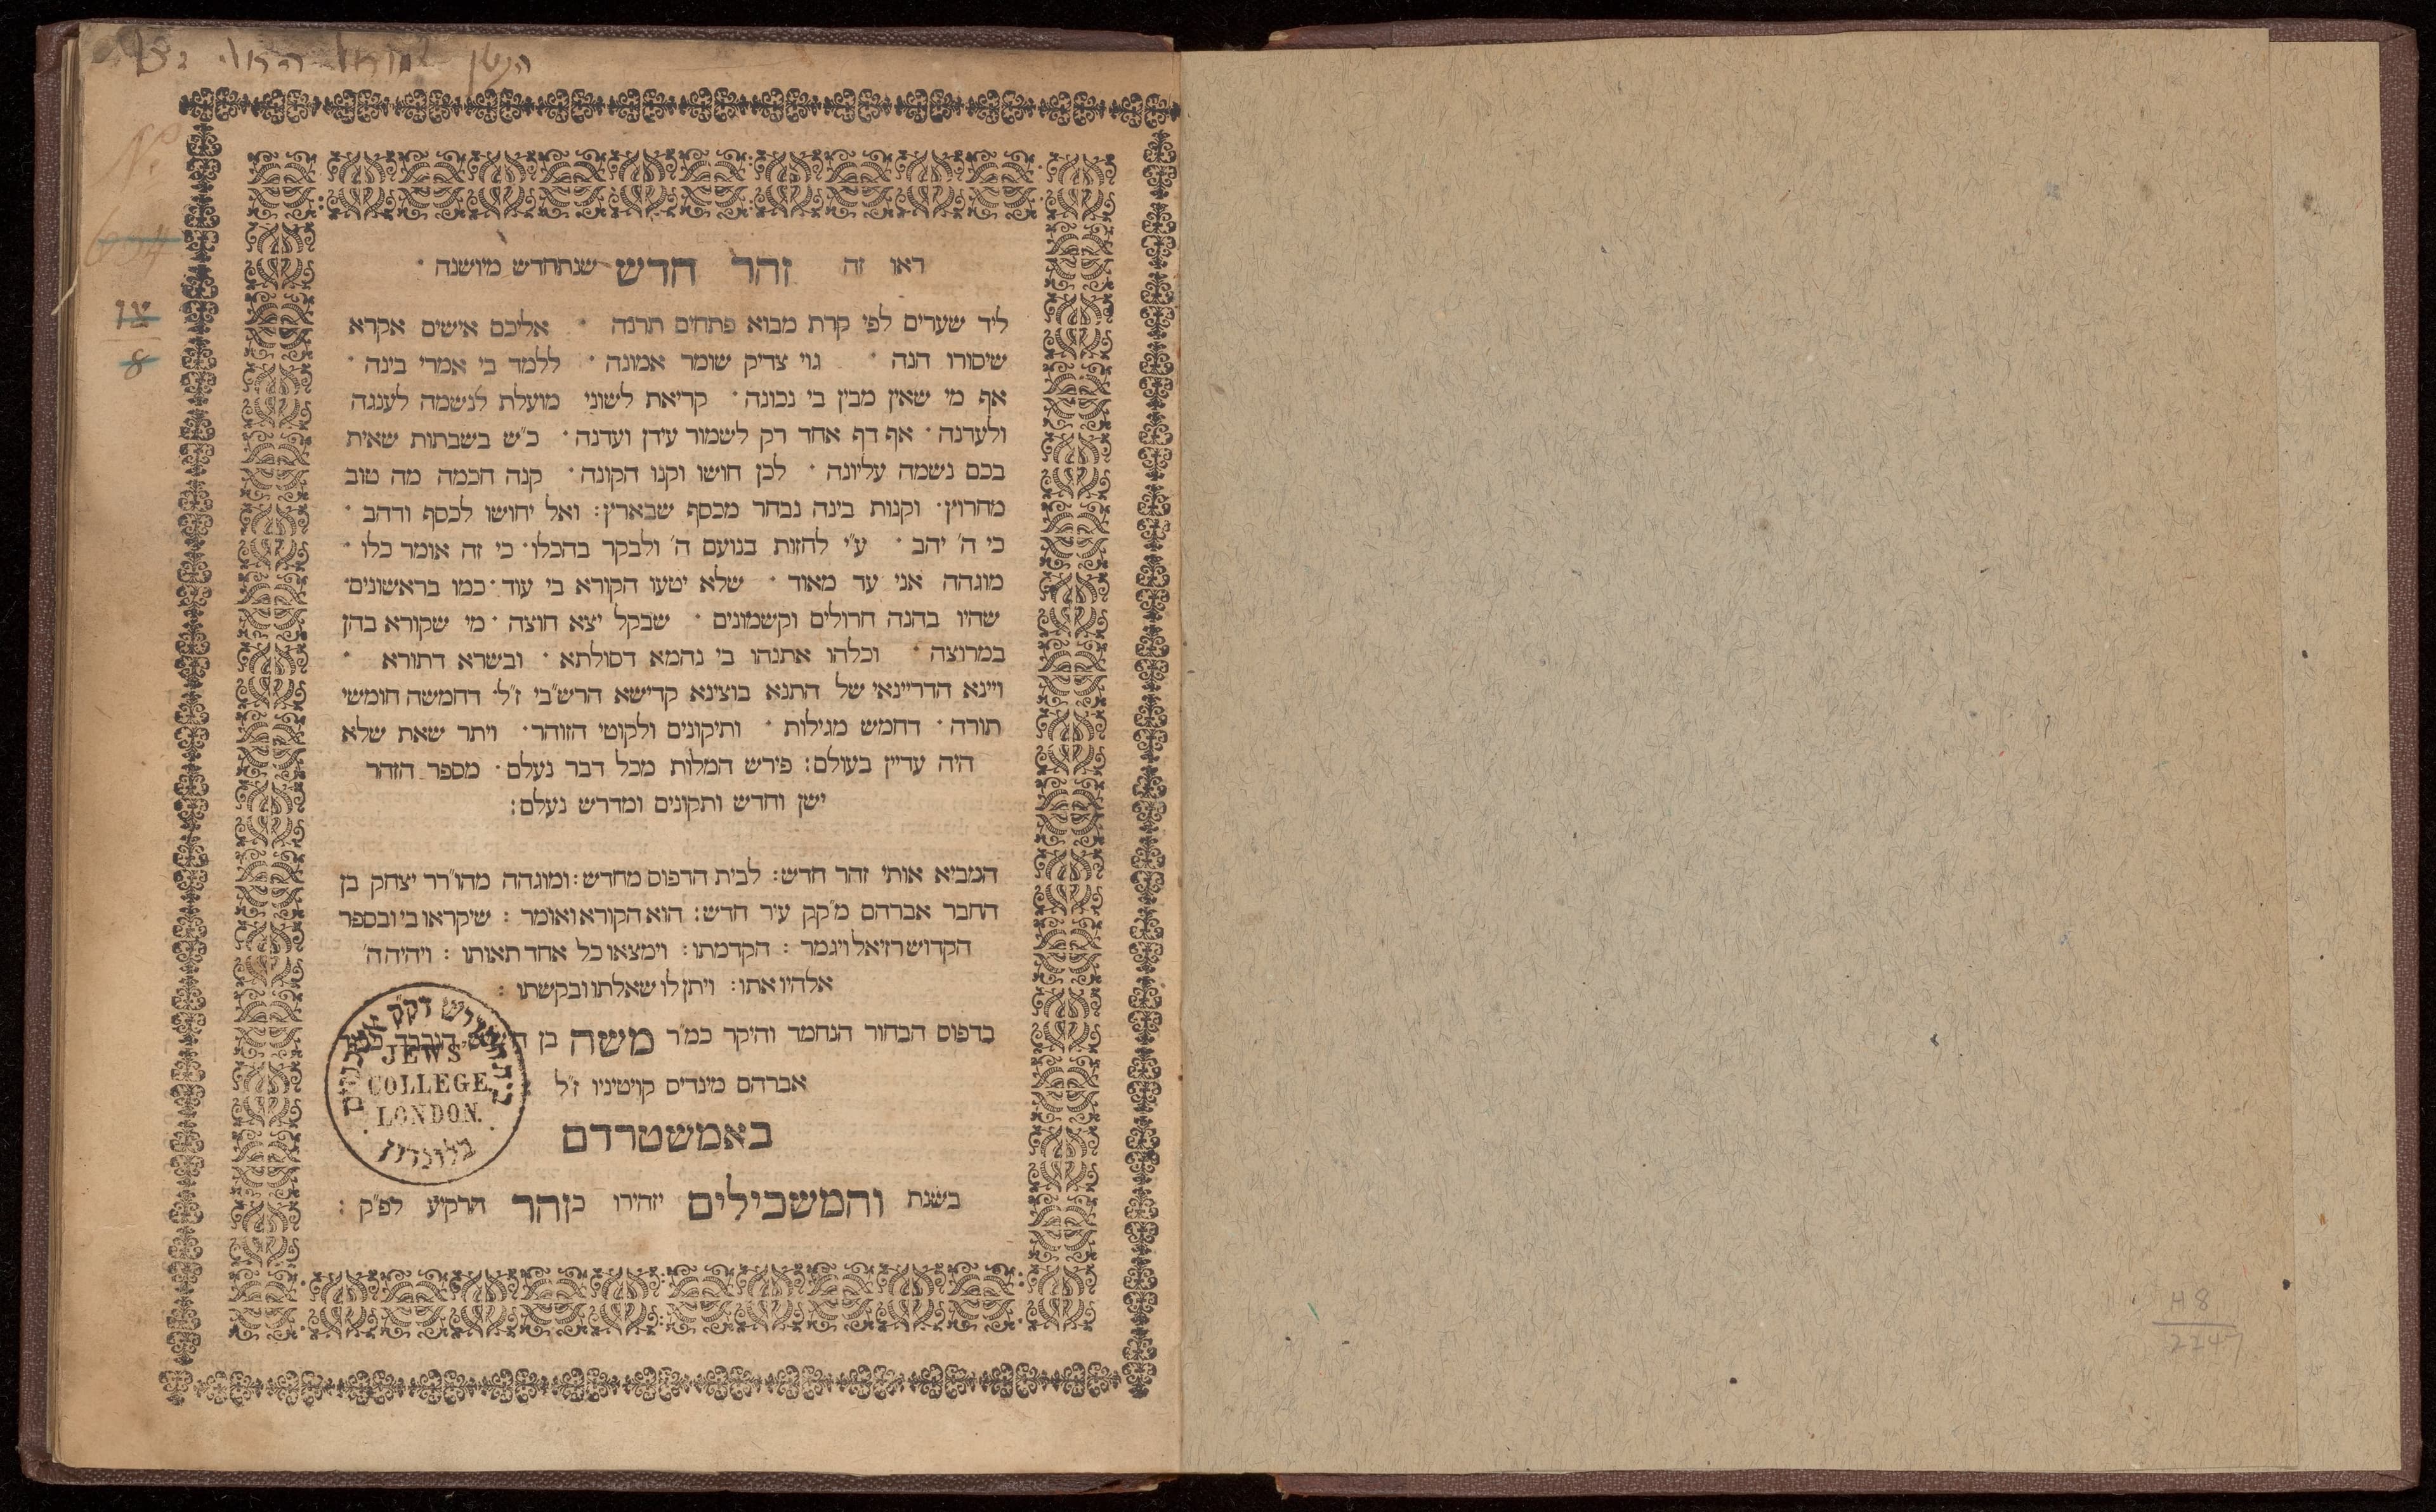 הקטן
Nº
694
צז
8
ראו זה זהר חדש שנתחדש מיושנה ·
ליד שערים לפי קרת מבוא פתחים תרנה · אליכם אישים אקרא
שיסורו הנה · גוי צדיק שומר אמונה · ללמד בי אמרי בינה ·
אף מי שאין מבין בי נכונה · קריאת לשוני מועלת לנשמה לענגה
ולעדנה · אף דף אחד רק לשמור עידן ועדנה · כ״ש בשבתות שאית
בכם נשמה עליונה · לכן חושו וקנו הקונה · קנה חכמה מה טוב
מחרוץ · וקנות בינה נבחר מכסף שבארץ : ואל יחושו לכסף וזהב ·
כי ה׳ יהב · ע״י לחזות בנועם ה׳ ולבקר בהכלו · כי זה אומר כלו ·
מוגהה אני עד מאוד · שלא יטעו הקורא בי עוד · כמו בראשונים ·
שהיו בהנה חרולים וקשמונים · שבקל יצא חוצה · מי שקורא בהן
במרוצה · וכלהו אתנהו בי נהמא דסולתא · ובשרא דתורא ·
ויינא הדריינאי של התנא בוצינא קדישא הרשב״י ז״ל דחמשה חומשי
תורה · דחמש מגילות · ותיקונים ולקוטי הזוהר · ויתר שאת שלא
היה עדיין בעולם : פירש המלות מכל דבר נעלם · מספר הזהר
ישן וחדש ותקונים ומדרש נעלם :
המביא אותי זהר חדש : לבית הדפוס מחדש : ומוגהה מהו״רר יצחק בן
החבר אברהם מ״קק עיר חדש : הוא הקורא ואומר : שיקראו בי ובספר
הקדוש רזיאל ויגמר : הקדמתו : וימצאו כל אחד תאותו : ויהי ה׳
אלהיו אתו : ויתן לו שאלתו ובקשתו :
בדפוס הבחור הנחמד והיקר כמ״ר משה בן
אברהם מינדיס קויטיניו ז״ל
באמשטרדם
בשנת והמשכילים יזהירו כזהר הרקיע לפ״ק :
JEWS'
COLLEGE
LONDON.
בלונדון
H8
2247